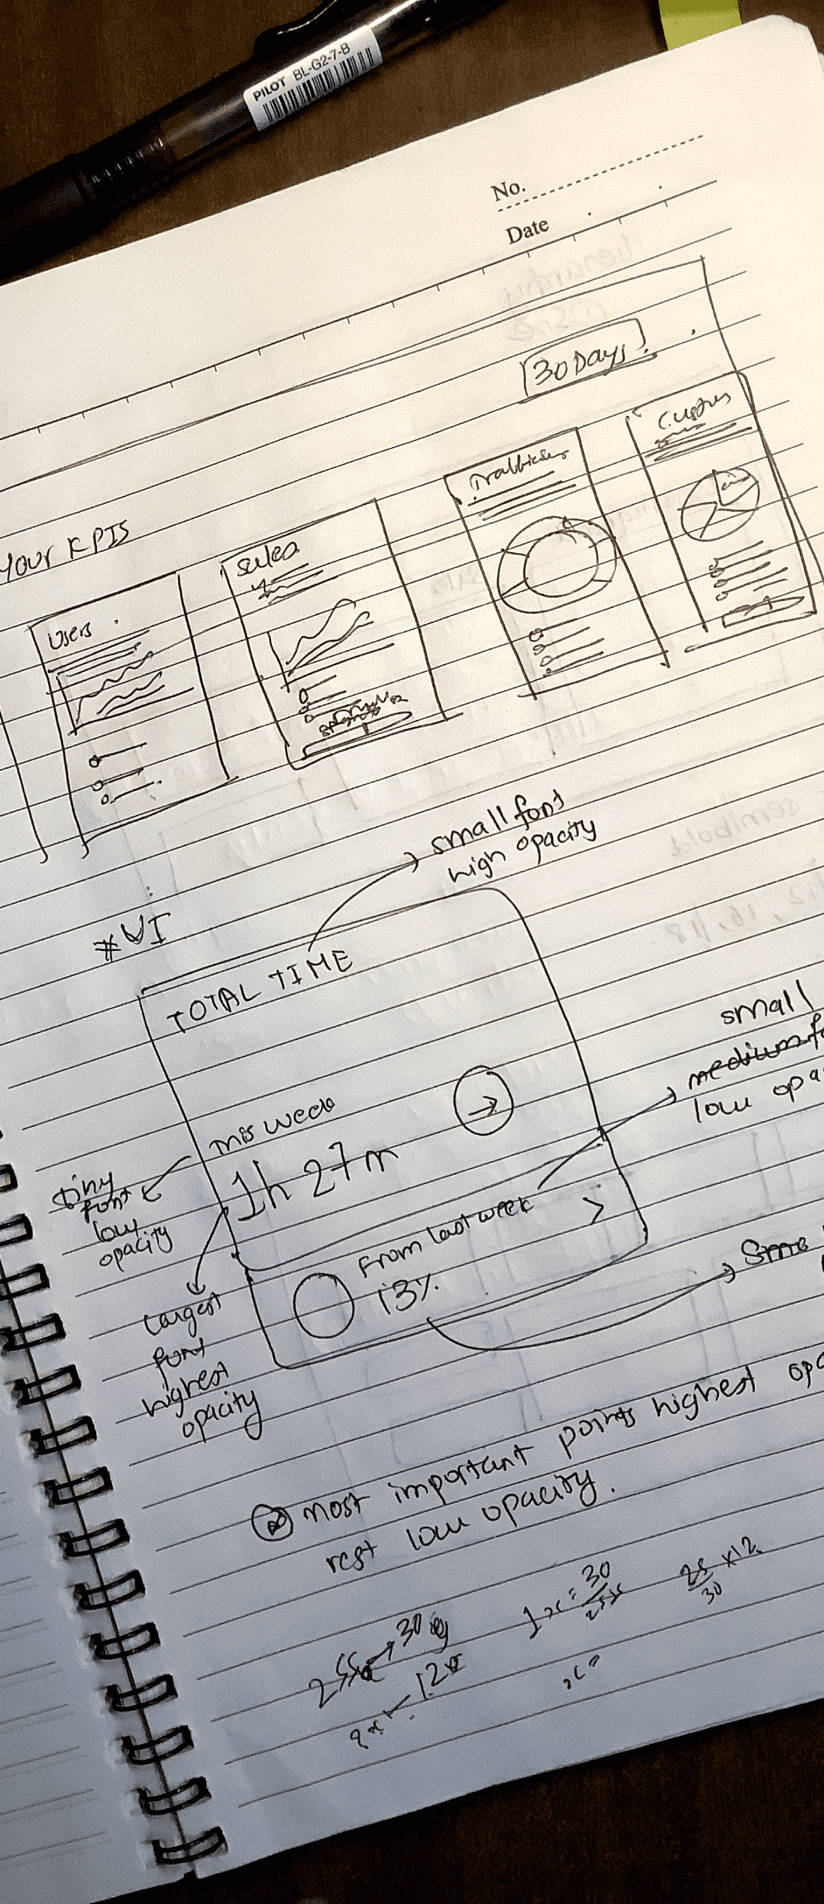 PILOT BL-G2-7-B
No.
Date
30 Days
Your KPIS
Users
Sales
small font
high opacity
*UI
TOTAL TIME
small
medium
low opa
This week
1h 27m
tiny
font
low
opacity
From last week
13%
Largest
font
highest
opacity
most important points highest opa
rest low opacity.
30
12
1x = 30
x =
25/30 x12
semibold
12, 16, 18